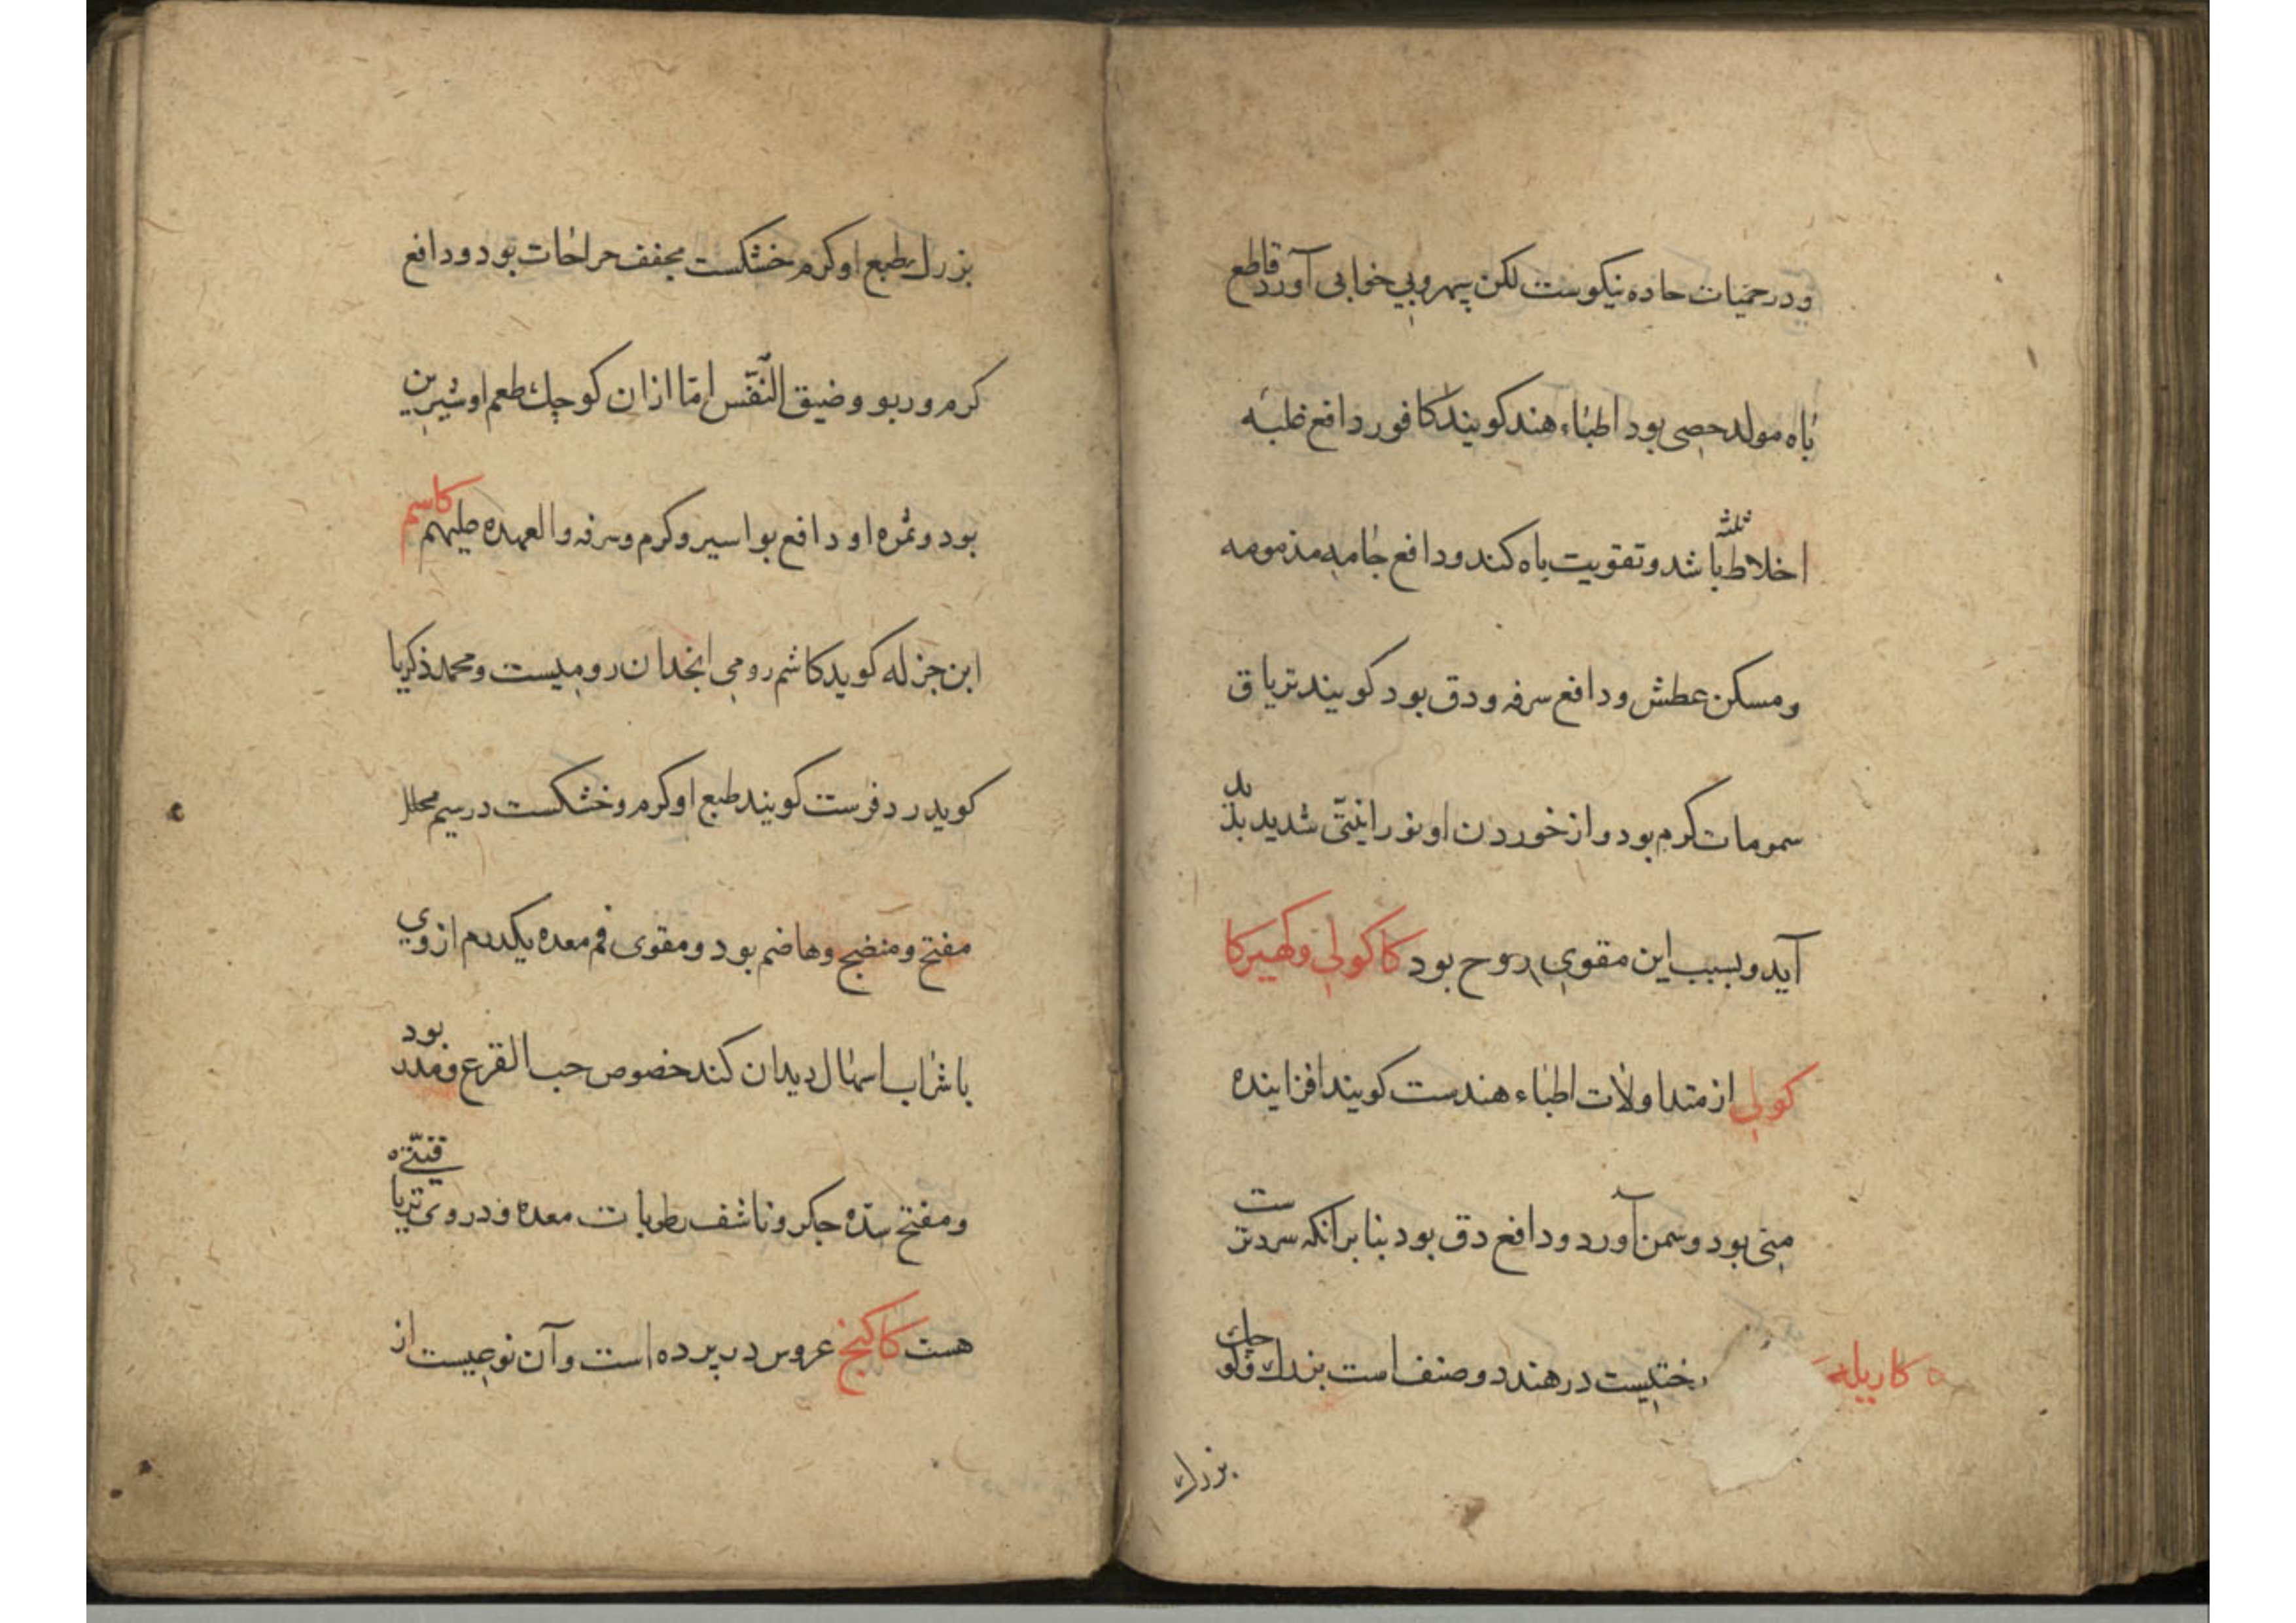 ودر حمیات حاده نیکوست لکن پیهر وبی خوابی آورد قاطع
باه مولد حصی بود اطباء هند کویند کافور دافع غلبه
اخلاط ثلثه باشد وتقویت باه کند ودافع مذمومه
ومسکن عطش ودافع سرفه ودق بود کویند تریاق
سمومات کرم بود واز خوردن او نورانیتی شدید پدید
آید وبسبب این مقوی روح بود کاکولی وکهیرکا
کولی از متداولات اطباء هندست کویند افزاینده
منی بود وسمن آورد ودافع دق بود بنا برانکه سردترست
کاریله درختیست در هند دو صنف است بزرك وکوچك
بزرك
بزرك طبع او کرم خشکست مجفف جراحات بود ودافع
کرم وربو وضیق النّفس امّا ازان کوچك طعم او شیرین
بود وثمره او دافع بواسیر وکرم وسرفه والعهده علیهم کاسم
ابن جزله کوید کاشم رومی انجدان رومیست ومحمد ذکریا
کوید در دفرست کویند طبع او کرم وخشکست در سیم محلل
مفتح ومنضج وهاضم بود ومقوی فم معده یکدرم از وی
با شراب اسهال دیدان کند خصوص حب القرع ومدر بود
ومفتح سدّه جکر وناشف رطوبات معده ودر وی تریاقیّتی
هست کاکنج عروس در پرده است وآن نوعیست از